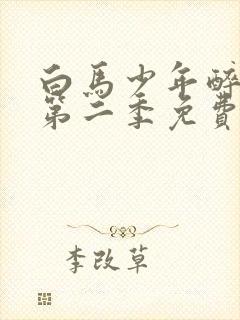 白馬少年醉
第二季免費
李改草